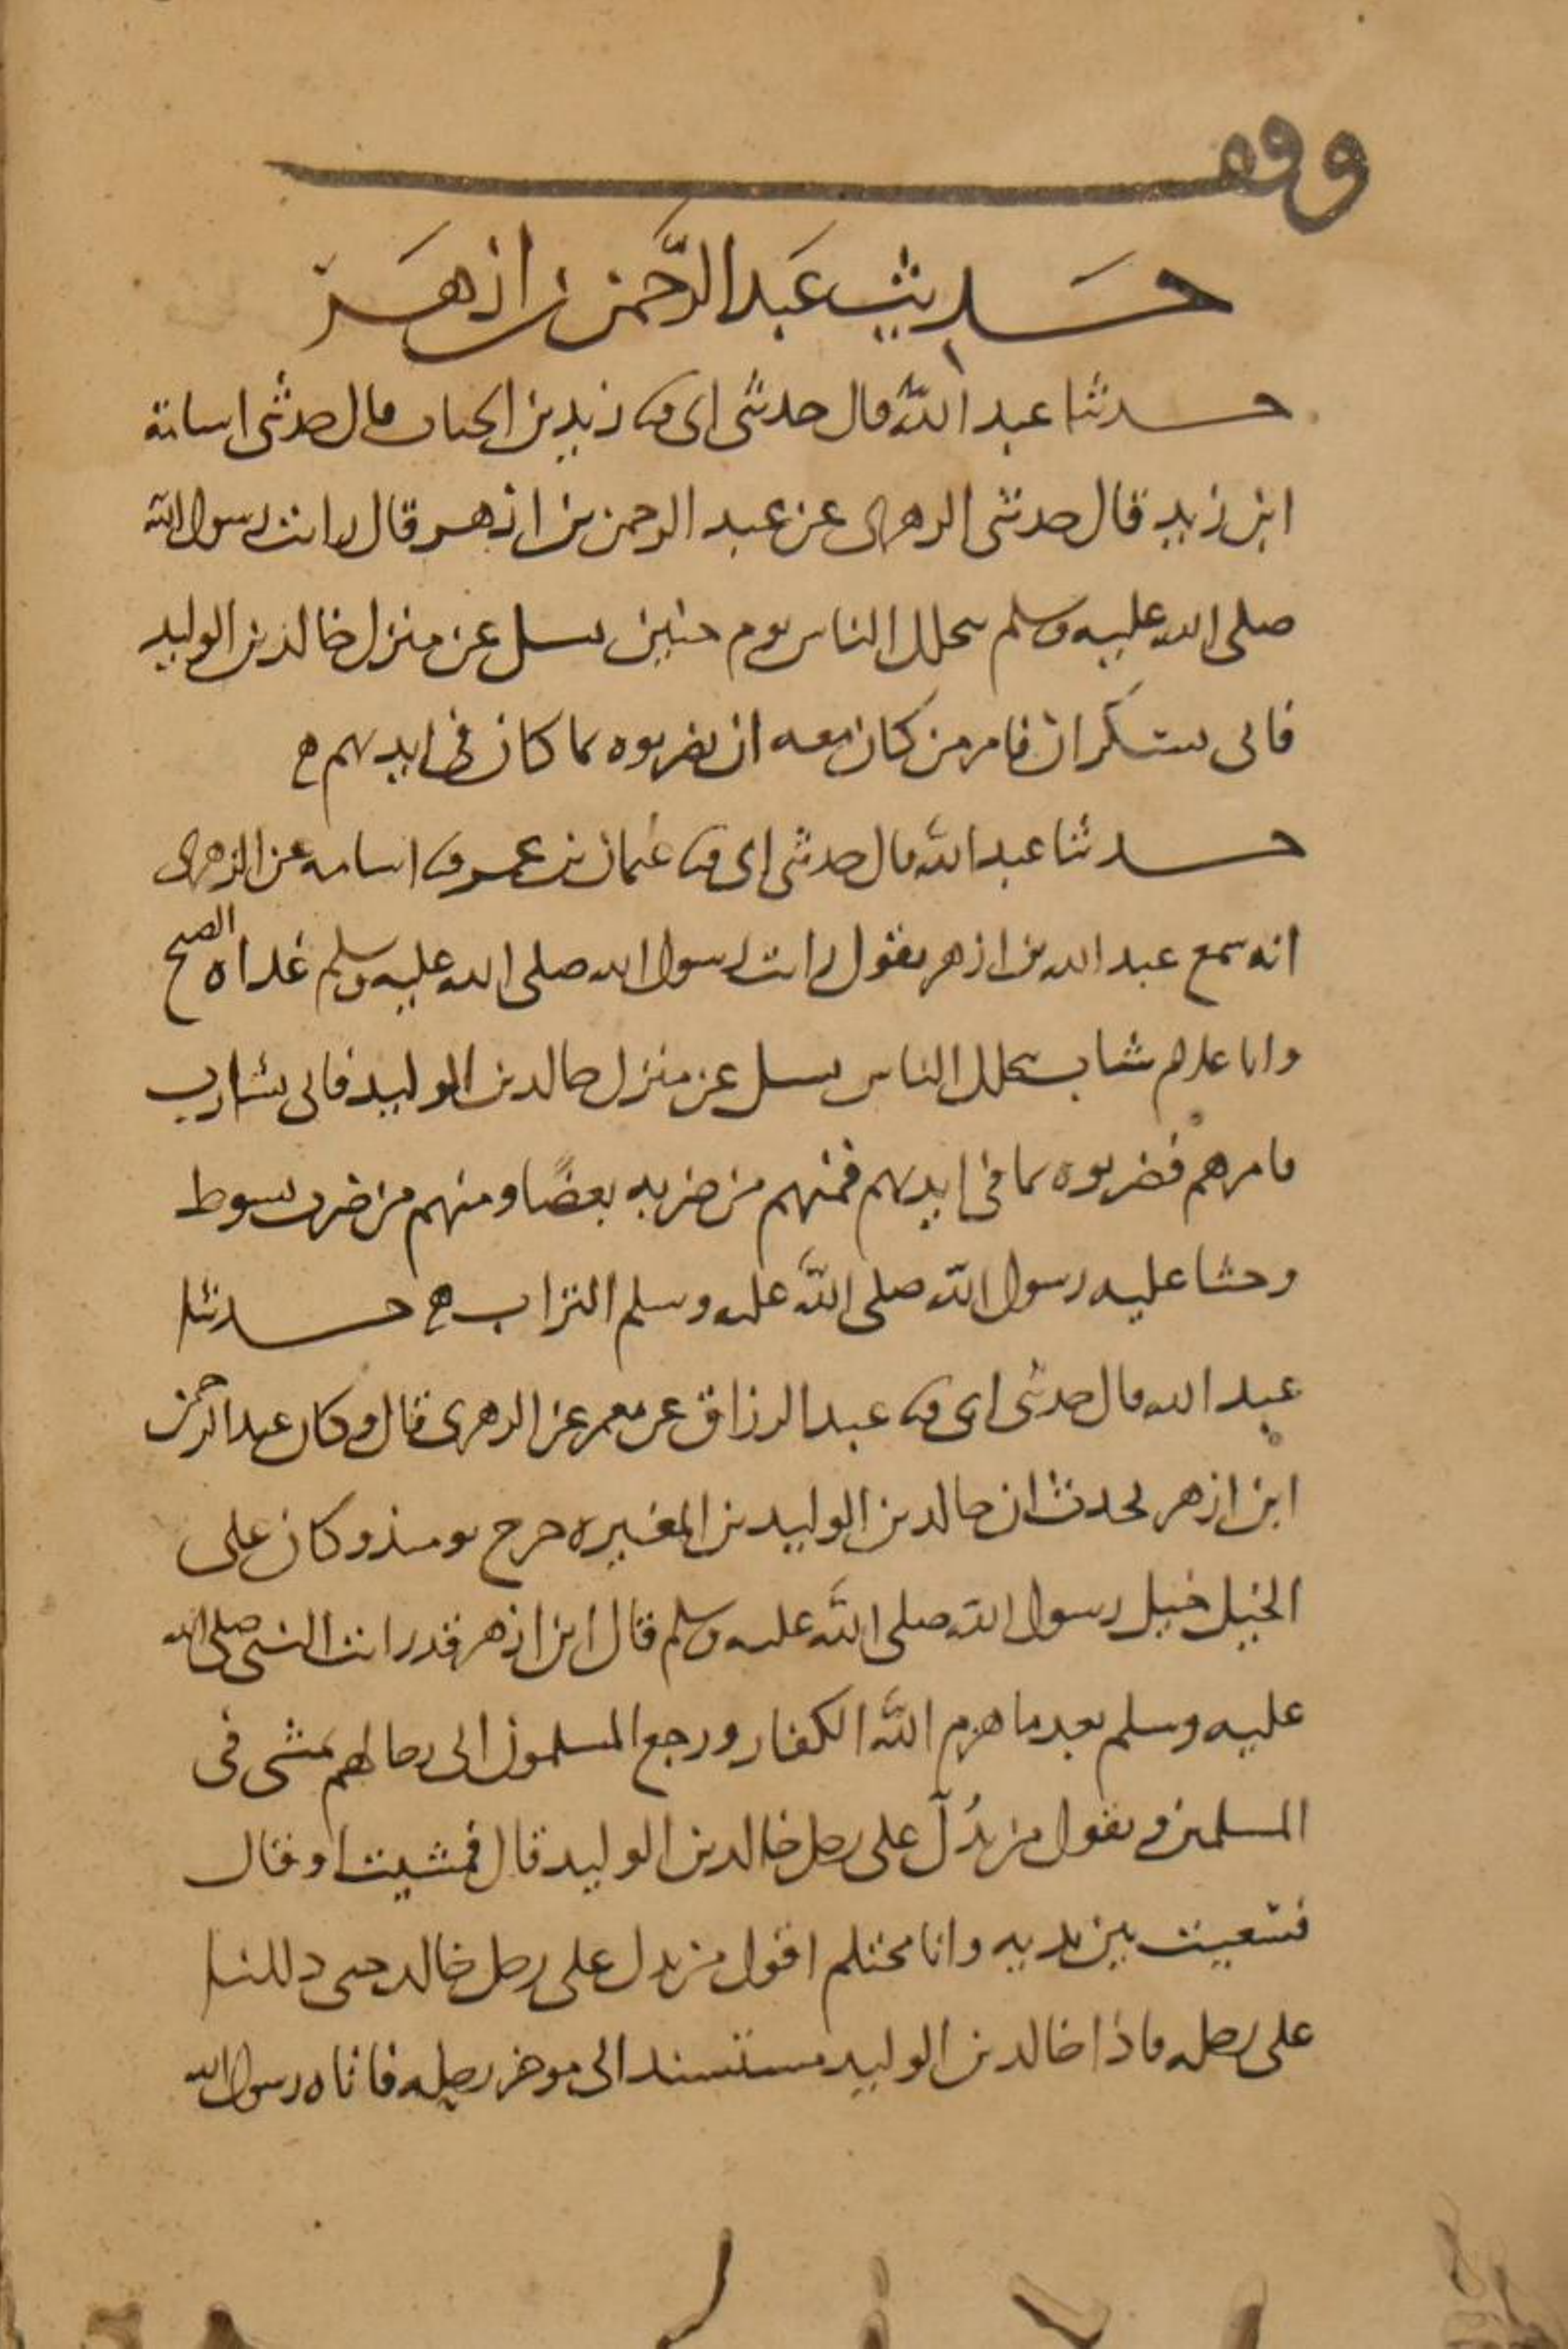 وقف
حديث عبد الرحمن بن ازهر
حدثنا عبد الله قال حدثنى ابى ثنا زيد بن الحباب قال حدثنى اسامة
ابن زيد قال حدثنى الزهرى عن عبد الرحمن بن ازهر قال رايت رسول الله
صلى الله عليه وسلم يتخلل الناس يوم حنين يسل عن منزل خالد بن الوليد
فاتى بسكران فامر من كان معه ان يضربوه بما كان فى ايديهم
حدثنا عبد الله قال حدثنى ابى ثنا عثمان بن عمر ثنا اسامه عن الزهرى
انه سمع عبد الله بن ازهر يقول رايت رسول الله صلى الله عليه وسلم غداه الصبح
وانا غلام شاب يتخلل الناس يسل عن منزل خالد بن الوليد فاتى بشارب
فامرهم فضربوه بما فى ايديهم فمنهم من ضربه بعصا ومنهم من ضرب بسوط
وحثا عليه رسول الله صلى الله عليه وسلم التراب حدثنا
عبد الله قال حدثنى ابى ثنا عبد الرزاق عن معمر عن الزهرى قال وكان عبد الرحمن
ابن ازهر يحدث ان خالد بن الوليد بن المغيره خرج يومىذ وكان على
الخيل خيل رسول الله صلى الله عليه وسلم قال ابن ازهر قد رايت النبى صلى الله
عليه وسلم بعد ما هزم الله الكفار ورجع المسلمون الى رحالهم يمشى فى
المسلمين ويقول من يدُلّ على رحل خالد بن الوليد قال فمشيت او قال
فسعيت بين يديه وانا محتلم اقول من يدل على رحل خالد حتى دللنا
على رحله فاذا خالد بن الوليد مستسند الى موخر رحله فاتاه رسول الله